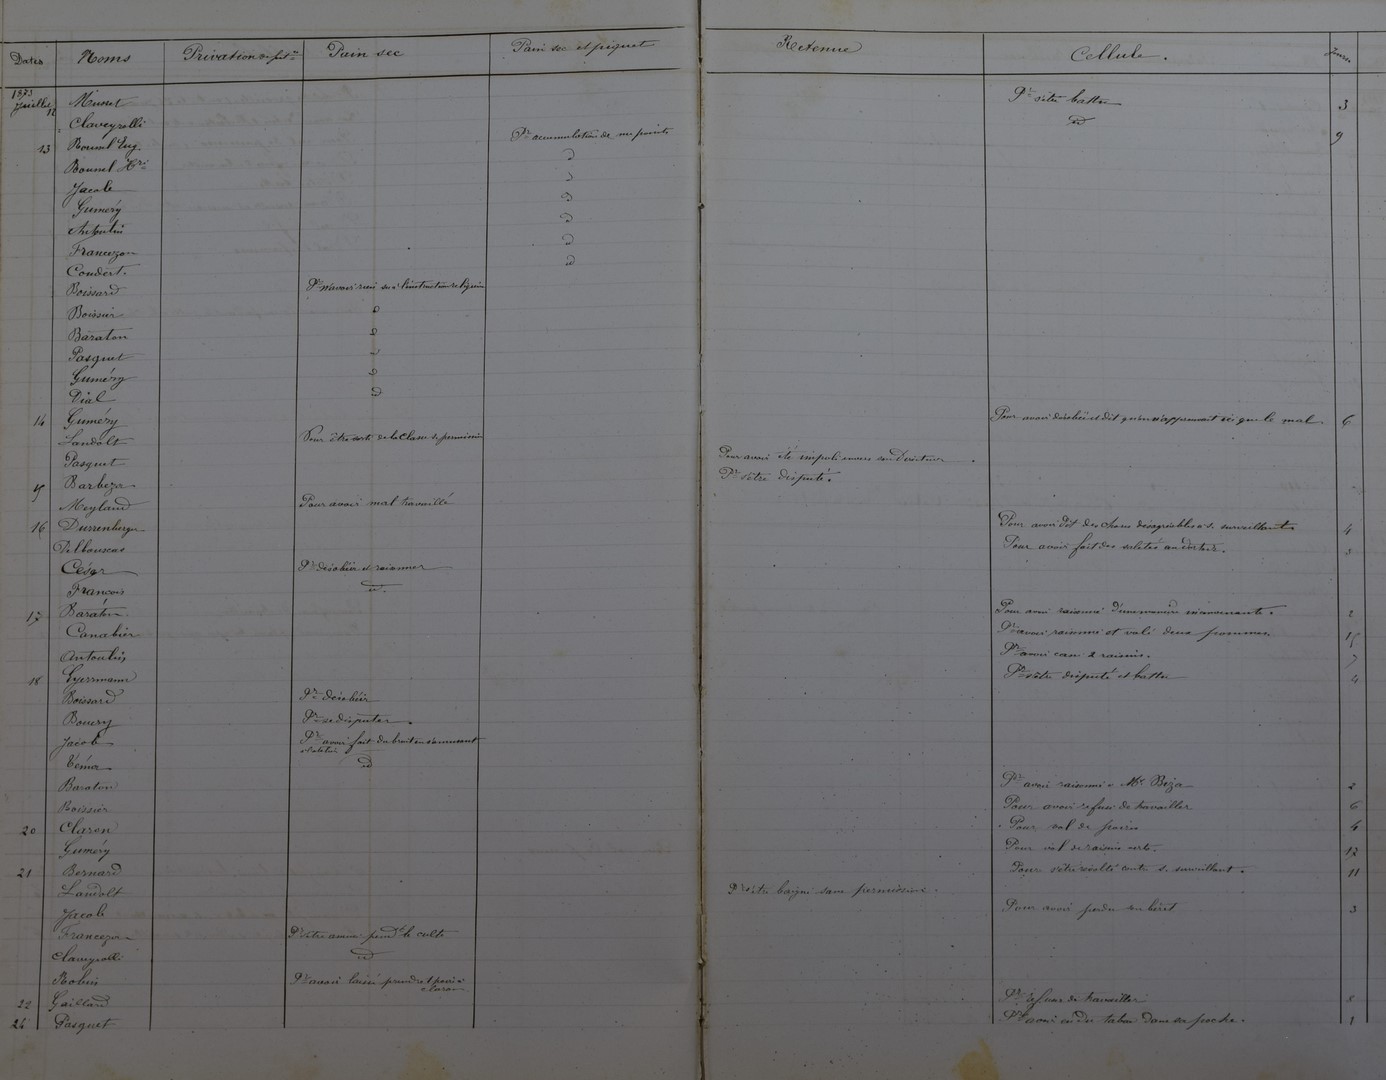 Dates Noms Pain sec Pain sec et piquet Retenue Cellule.
1873
Juillet 12 Munet Pr s'être battu 3
Claveyrolli d 9
13 Bonnel Eug. Pr accumulation de points
Bonnel Hri d
Jacob d
Guméry d
d
Francezon d
Condert. d
Boissard Pr n'avoir rien su à l'instruction religieuse
Boissier d
Baraton d
Pasquet d
Guméry d
Vial d
14 Guméry Pour avoir désobéi et dit qu'on n'apprenait ici que le mal 6
Landolt Pour être sorti de la classe sans permission
Pasquet Pour avoir été impoli envers son Directeur
15 Barbeza Pr s'être disputé.
Meylaud Pour avoir mal travaillé
16 Durrenberger Pour avoir dit des choses désagréables à s. surveillant 4
Delbouscas Pour avoir fait des saletés au dortoir. 3
César Pr désobéir et raisonner
François d.
17 Baraton. Pour avoir raisonné d'une manière inconvenante. 2
Canabier Pr avoir raisonné et volé deux pommes 15
Antoulin Pr avoir 2 raisins. 7
18 Eyermann Pr s'être disputé et battu 4
Boissard Pr désobéir
Bouery Pr se disputer.
Jacob Pr avoir fait du bruit en s'amusant
à l'atelier
Téma d
Baraton Pr avoir raisonné à Mr Biza 2
Boissier Pour avoir refusé de travailler 6
20 Claron Pour vol de poires 4
Guméry Pour vol de raisins verts. 12
21 Bernard Pour s'être révolté contre s. surveillant. 11
Landolt Pr s'être baigné sans permission.
Jacob Pour avoir perdu son béret 3
Francezon Pr s'être amusé pendt le culte
Claveyrolli d
Robin Pr avoir laissé prendre 1 poire à
Claron
22 Gaillard Pr refuser de travailler 8
24 Pasquet Pr avoir eu du tabac dans sa poche. 1